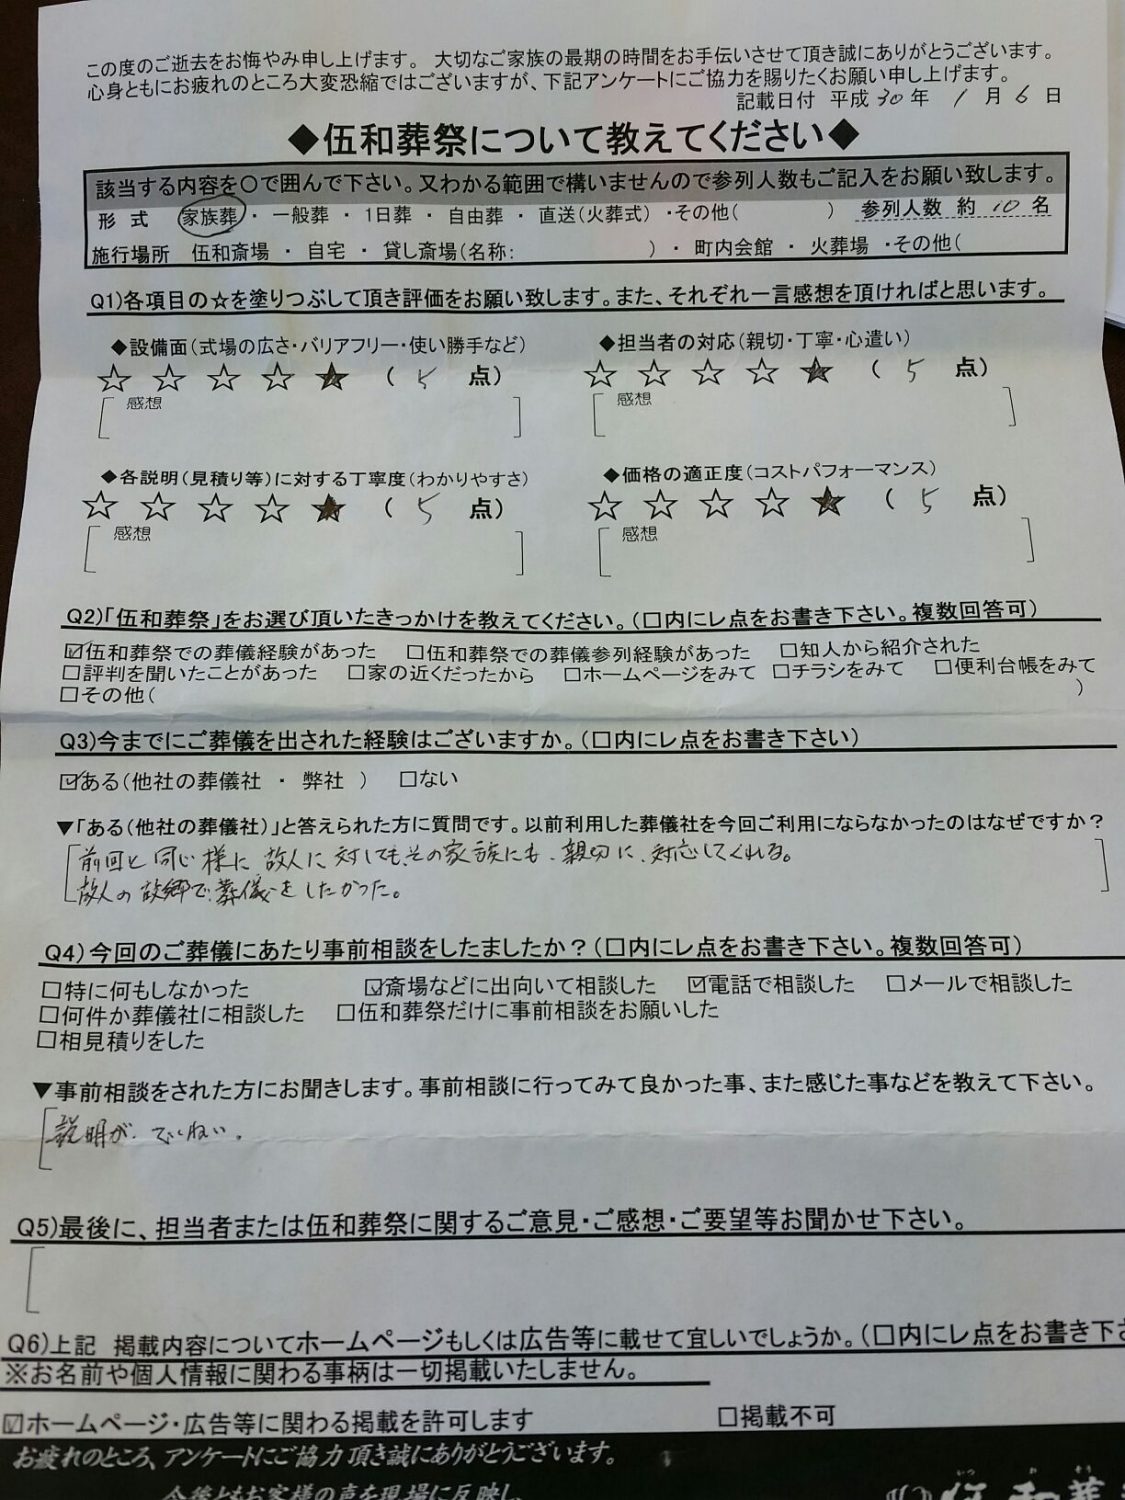 この度のご逝去をお悔やみ申し上げます。 大切なご家族の最期の時間をお手伝いさせて頂き誠にありがとうございます。
心身ともにお疲れのところ大変恐縮ではございますが、下記アンケートにご協力を賜りたくお願い申し上げます。
記載日付 平成 30 年 1 月 6 日
◆伍和葬祭について教えてください◆
該当する内容を〇で囲んで下さい。又わかる範囲で構いませんので参列人数もご記入をお願い致します。
形 式 家族葬・ 一般葬 ・ 1日葬 ・ 自由葬 ・ 直送(火葬式) ・その他( ) 参列人数 約 10 名
施行場所 伍和斎場 ・ 自宅 ・ 貸し斎場(名称: ) ・ 町内会館 ・ 火葬場 ・その他(
Q1)各項目の☆を塗りつぶして頂き評価をお願い致します。また、それぞれ一言感想を頂ければと思います。
◆設備面(式場の広さ・バリアフリー・使い勝手など) ◆担当者の対応(親切・丁寧・心遣い)
☆ ☆ ☆ ☆ ★ ( 5 点) ☆ ☆ ☆ ☆ ★ ( 5 点)
感想 感想
◆各説明(見積り等)に対する丁寧度(わかりやすさ) ◆価格の適正度(コストパフォーマンス)
☆ ☆ ☆ ☆ ★ ( 5 点) ☆ ☆ ☆ ☆ ★ ( 5 点)
感想 感想
Q2)「伍和葬祭」をお選び頂いたきっかけを教えてください。(□内にレ点をお書き下さい。複数回答可)
☑伍和葬祭での葬儀経験があった □伍和葬祭での葬儀参列経験があった □知人から紹介された
□評判を聞いたことがあった □家の近くだったから □ホームページをみて □チラシをみて □便利台帳をみて
□その他( )
Q3)今までにご葬儀を出された経験はございますか。(□内にレ点をお書き下さい)
☑ある(他社の葬儀社 ・ 弊社 ) □ない
▼「ある(他社の葬儀社)」と答えられた方に質問です。以前利用した葬儀社を今回ご利用にならなかったのはなぜですか？
前回と同じ様に故人に対してもその家族にも、親切に、対応してくれる。
故人の故郷で葬儀をしたかった。
Q4)今回のご葬儀にあたり事前相談をしたましたか？(□内にレ点をお書き下さい。複数回答可)
□特に何もしなかった ☑斎場などに出向いて相談した ☑電話で相談した □メールで相談した
□何件か葬儀社に相談した □伍和葬祭だけに事前相談をお願いした
□相見積りをした
▼事前相談をされた方にお聞きします。事前相談に行ってみて良かった事、また感じた事などを教えて下さい。
説明が、ていねい。
Q5)最後に、担当者または伍和葬祭に関するご意見・ご感想・ご要望等お聞かせ下さい。
Q6)上記 掲載内容についてホームページもしくは広告等に載せて宜しいでしょうか。(□内にレ点をお書き下さ
※お名前や個人情報に関わる事柄は一切掲載いたしません。
☑ホームページ・広告等に関わる掲載を許可します □掲載不可
お疲れのところ、アンケートにご協力頂き誠にありがとうございます。
今後ともお客様の声を現場に反映し、
伍和葬